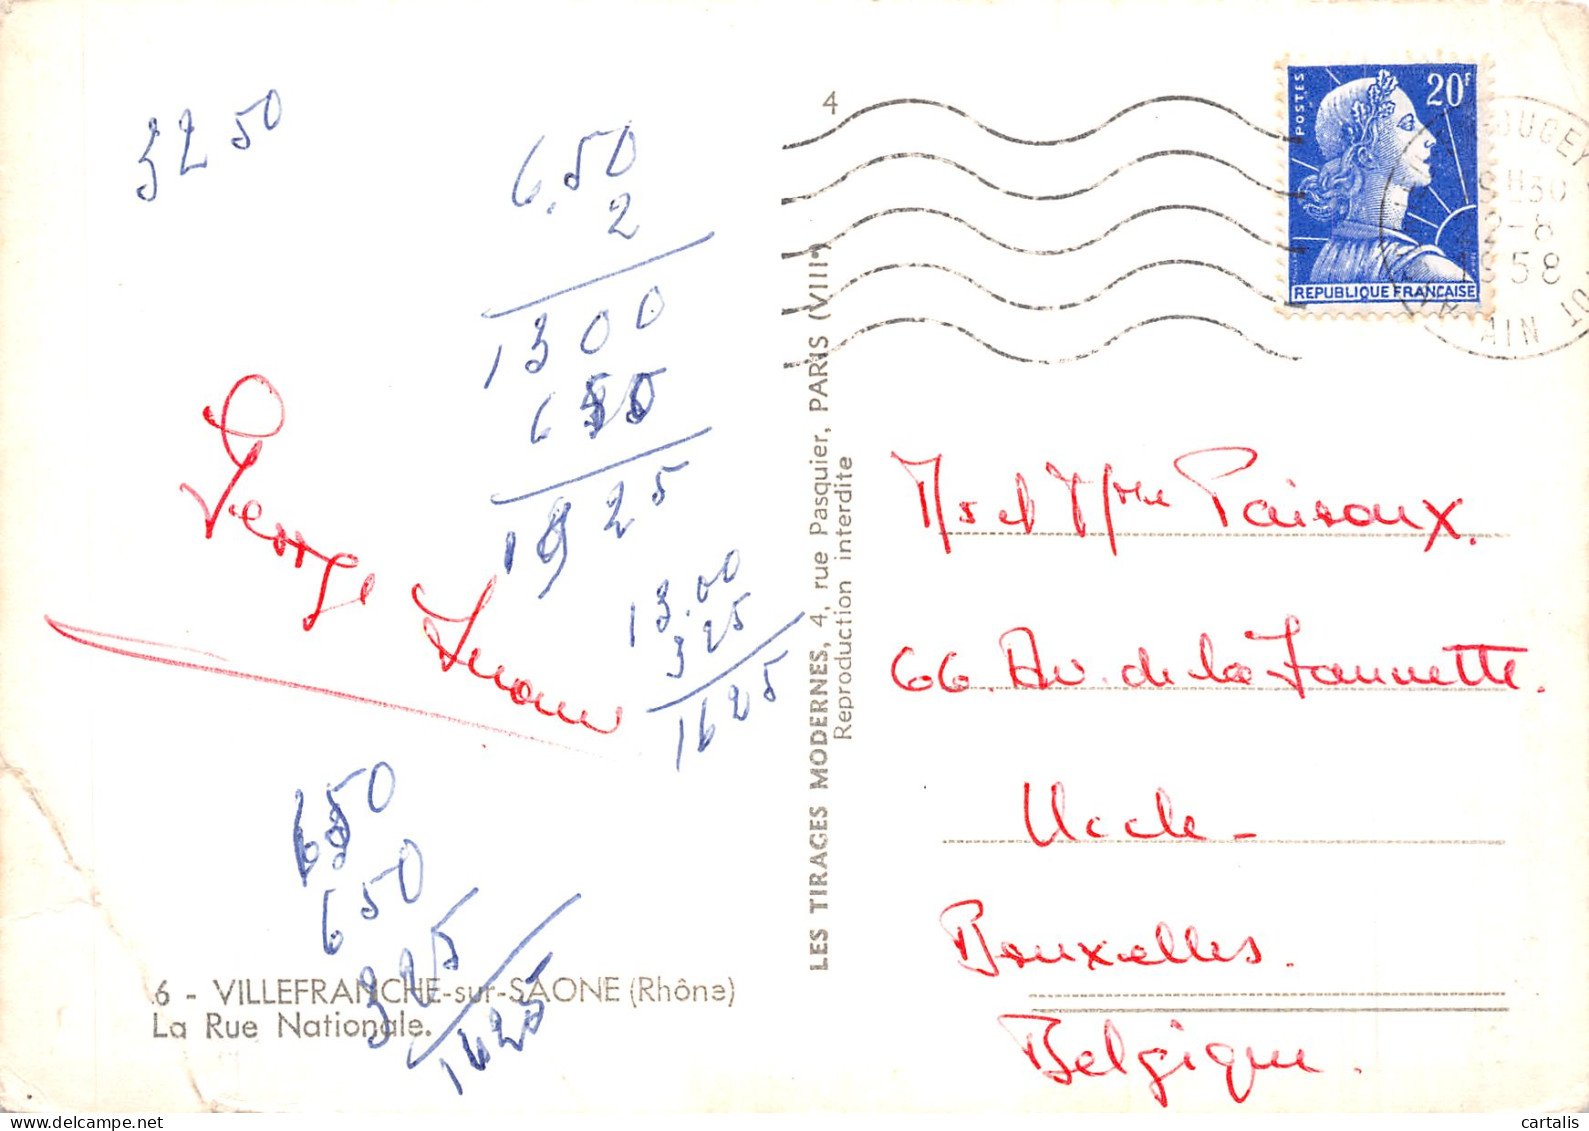 3250
6.50
2
1300
650
1925
13.00
325
1625
George
650
650
325
1625
6 - VILLEFRANCHE-sur-SAONE (Rhône)
La Rue Nationale.
4
LES TIRAGES MODERNES, 4, rue Pasquier, PARIS (VIII)
Reproduction interdite
POSTES
20F
REPUBLIQUE FRANCAISE
1958
AIN
Mr et Mme Paisoux.
66. Av. de la Jannette.
Uccle -
Bruxelles.
Belgique.
cartalis
delcampe.net